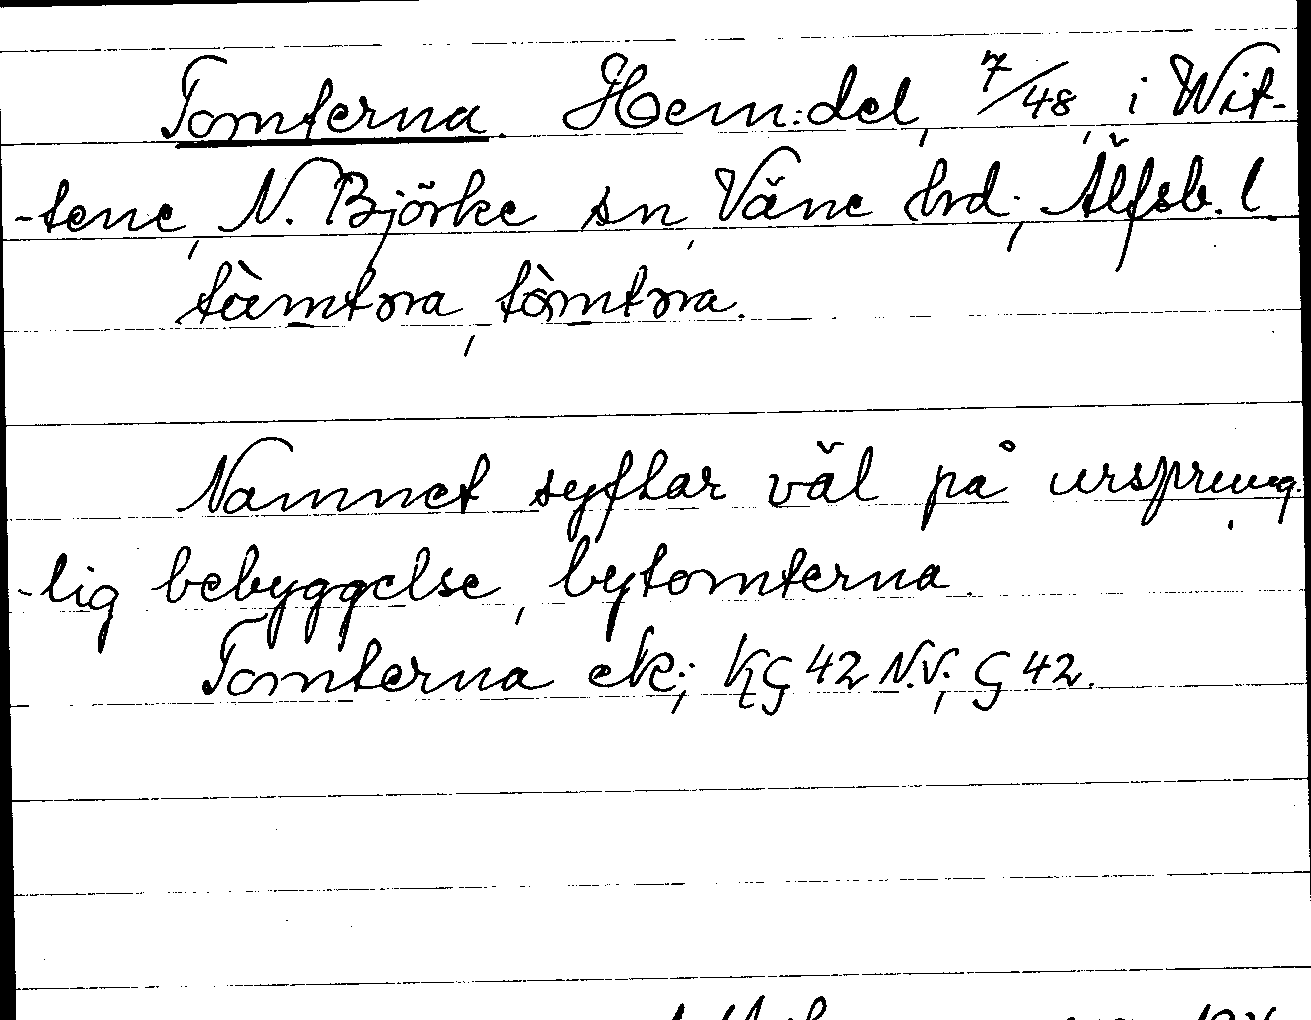 Tomterna. Hem:del, 7/48, i Wit-
-tene, N. Björke sn, Väne hrd; Älfsb. l.
tòmtɔra, tòmtɔra.
Namnet syftar väl på ursprung-
-lig bebyggelse, bytomterna.
Tomterna ek; KG 42 N.V; G 42.